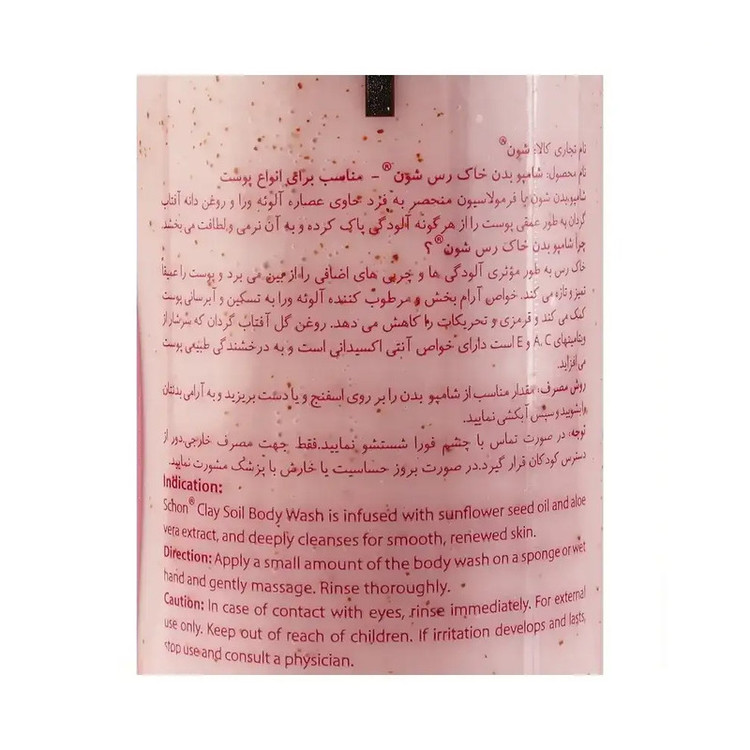 نام تجاری کالا: شون®
نام محصول: شامپو بدن خاک رس شون® - مناسب برای انواع پوست
شامپو بدن شون با فرمولاسیون منحصر به فرد حاوی عصاره آلوئه ورا و روغن دانه آفتاب
گردان به طور عمقی پوست را از هر گونه آلودگی پاک کرده و به آن نرمی و لطافت می بخشد.
چرا شامپو بدن خاک رس شون®؟
خاک رس به طور مؤثری آلودگی ها و چربی های اضافی را از بین می برد و پوست را عمیقا
تمیز و تازه می کند. خواص آرام بخش و مرطوب کننده آلوئه ورا به تسکین و آبرسانی پوست
کمک می کند و قرمزی و تحریکات را کاهش می دهد. روغن گل آفتاب گردان که سرشار از
ویتامینهای A, C و E است دارای خواص آنتی اکسیدانی است و به درخشندگی طبیعی پوست
می افزاید.
روش مصرف: مقدار مناسب از شامپو بدن را بر روی اسفنج و یا دست بریزید و به آرامی بدنتان
را بشویید و سپس آبکشی نمایید.
توجه: در صورت تماس با چشم فورا شستشو نمایید. فقط جهت مصرف خارجی. دور از
دسترس کودکان قرار گیرد. در صورت بروز حساسیت یا خارش با پزشک مشورت نمایید.
Indication:
Schon® Clay Soil Body Wash is infused with sunflower seed oil and aloe
vera extract, and deeply cleanses for smooth, renewed skin.
Direction: Apply a small amount of the body wash on a sponge or wet
hand and gently massage. Rinse thoroughly.
Caution: In case of contact with eyes, rinse immediately. For external
use only. Keep out of reach of children. If irritation develops and lasts,
stop use and consult a physician.